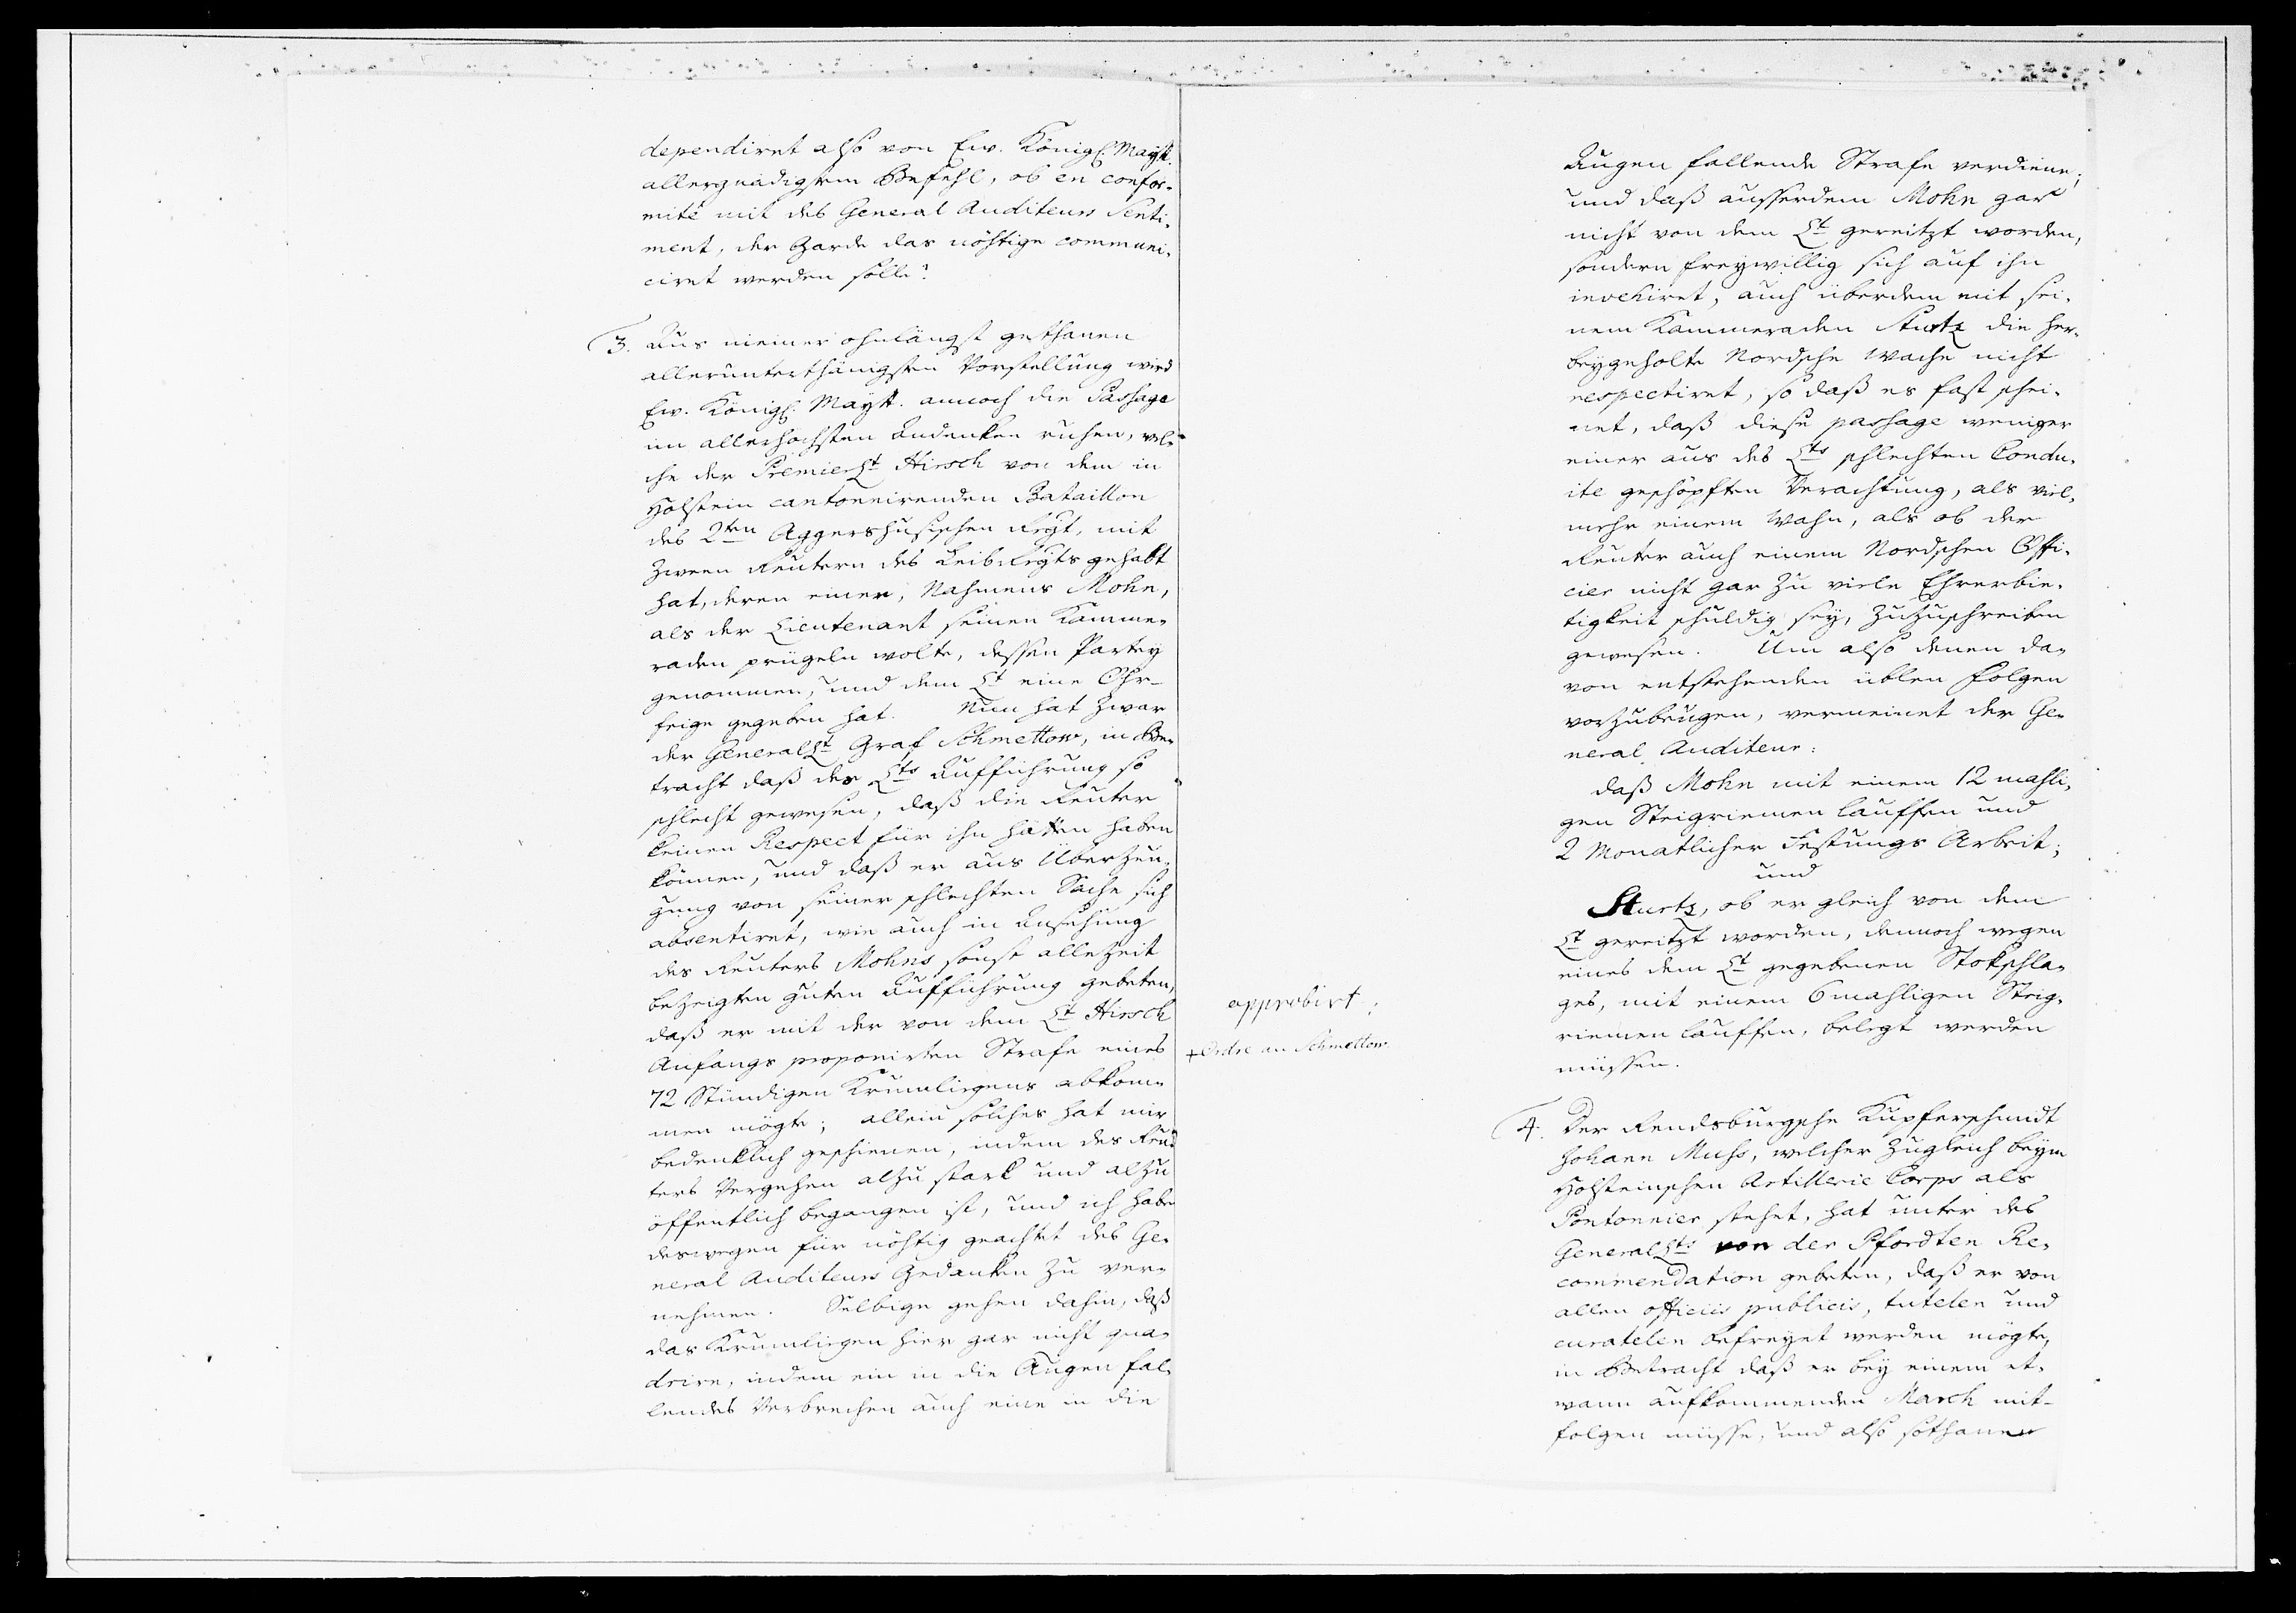 dependiret also von Ew. Königl. Maytt.
allergnädigsten Befehl, ob en confor-
mité mit des General Auditeurs Senti-
ment, der Garde das nöhtige communi-
ciret werden solle?
3. Aus meiner ohnlängst gethanen
allerunterthänigsten Vorstellung wird
Ew. Königl. Maytt. annoch die Passage
im allerhöchsten Andenken ruhen, wel-
che der Premier Lt Hirsch von dem in
Holstein cantonnirenden Bataillon
des 2ten Aggershusischen Regt. mit
zween Reutern des Leib Regts gehabt
hat, deren einer, Nahmens Mohn,
als der Lieutenant seinen Kamme-
raden prügeln wolte, dessen Partey
genommen, und dem Lt eine Ohr-
feige gegeben hat. Nun hat zwar
der General Lt Graf Schmettow, in Be-
tracht daß des Lts Aufführung so
schlecht gewesen, daß die Reuter
keinen Respect für ihn hätten haben
können, und daß er aus Überzeu-
gung von seiner schlechten Sache sich
absentiret, wie auch in Ansehung
des Reuters Mohns sonst allezeit
bezeigten guten Aufführung gebeten,
daß er mit der von dem Lt Hirsch
Anfangs proponirten Strafe eines
72 Stündigen Krumliegens abkom-
men mögte; allein solches hat mir
bedenklich geschienen, indem des Reu-
ters Vergehen alzu stark und alzu
öffentlich begangen ist, und ich habe
deswegen für nöhtig geachtet des Ge-
neral Auditeurs Gedanken zu ver-
nehmen. Selbige gehen dahin, daß
das Krumliegen hier gar nicht qua-
drire, indem ein in die Augen fal-
lendes Verbrechen auch eine in die
Augen fallende Strafe verdiene;
und daß ausserdem Mohn gar
nicht von dem Lt gereitzt worden,
sondern freywillig sich auf ihn
invehiret, auch überdem mit sei-
nem Kammeraden Sturtz die her-
beygeholte Nordsche Wache nicht
respectiret, so daß es fast schei-
net, daß diese passage weniger
einer aus des Lts schlechten Condu-
ite geschöpften Verachtung, als viel-
mehr einem Wahn, als ob der
Reuter auch einem Nordschen Offi-
cier nicht gar zu viele Ehrerbie-
tigkeit schuldig sey, zuzuschreiben
gewesen. Um also denen da-
von entstehenden üblen Folgen
vorzubeugen, vermeinet der Ge-
neral Auditeur:
daß Mohn mit einem 12 mahli-
gen Steigriemen lauffen und
2 Monatlicher Festungs Arbeit;
und
Sturtz, ob er gleich von dem
Lt gereitzt worden, dennoch wegen
eines dem Lt gegebenen Stokschla-
ges, mit einem 6 mahligen Steig-
riemen lauffen, belegt werden
müssen.
approbirt.
+ Ordre an Schmettow.
4. Der Rendsburgsche Kupferschmidt
Johann Muhs, welcher zugleich beym
Holsteinschen Artillerie Corps als
Pontonnier stehet, hat unter des
General Lts von der Pfordten Re-
commendation gebeten, daß er von
allen officiis publicis, tutelen und
curatelen befreyet werden mögte,
in Betracht daß er bey einem et-
wann aufkommenden March mit-
folgen müsse, und also sothanen